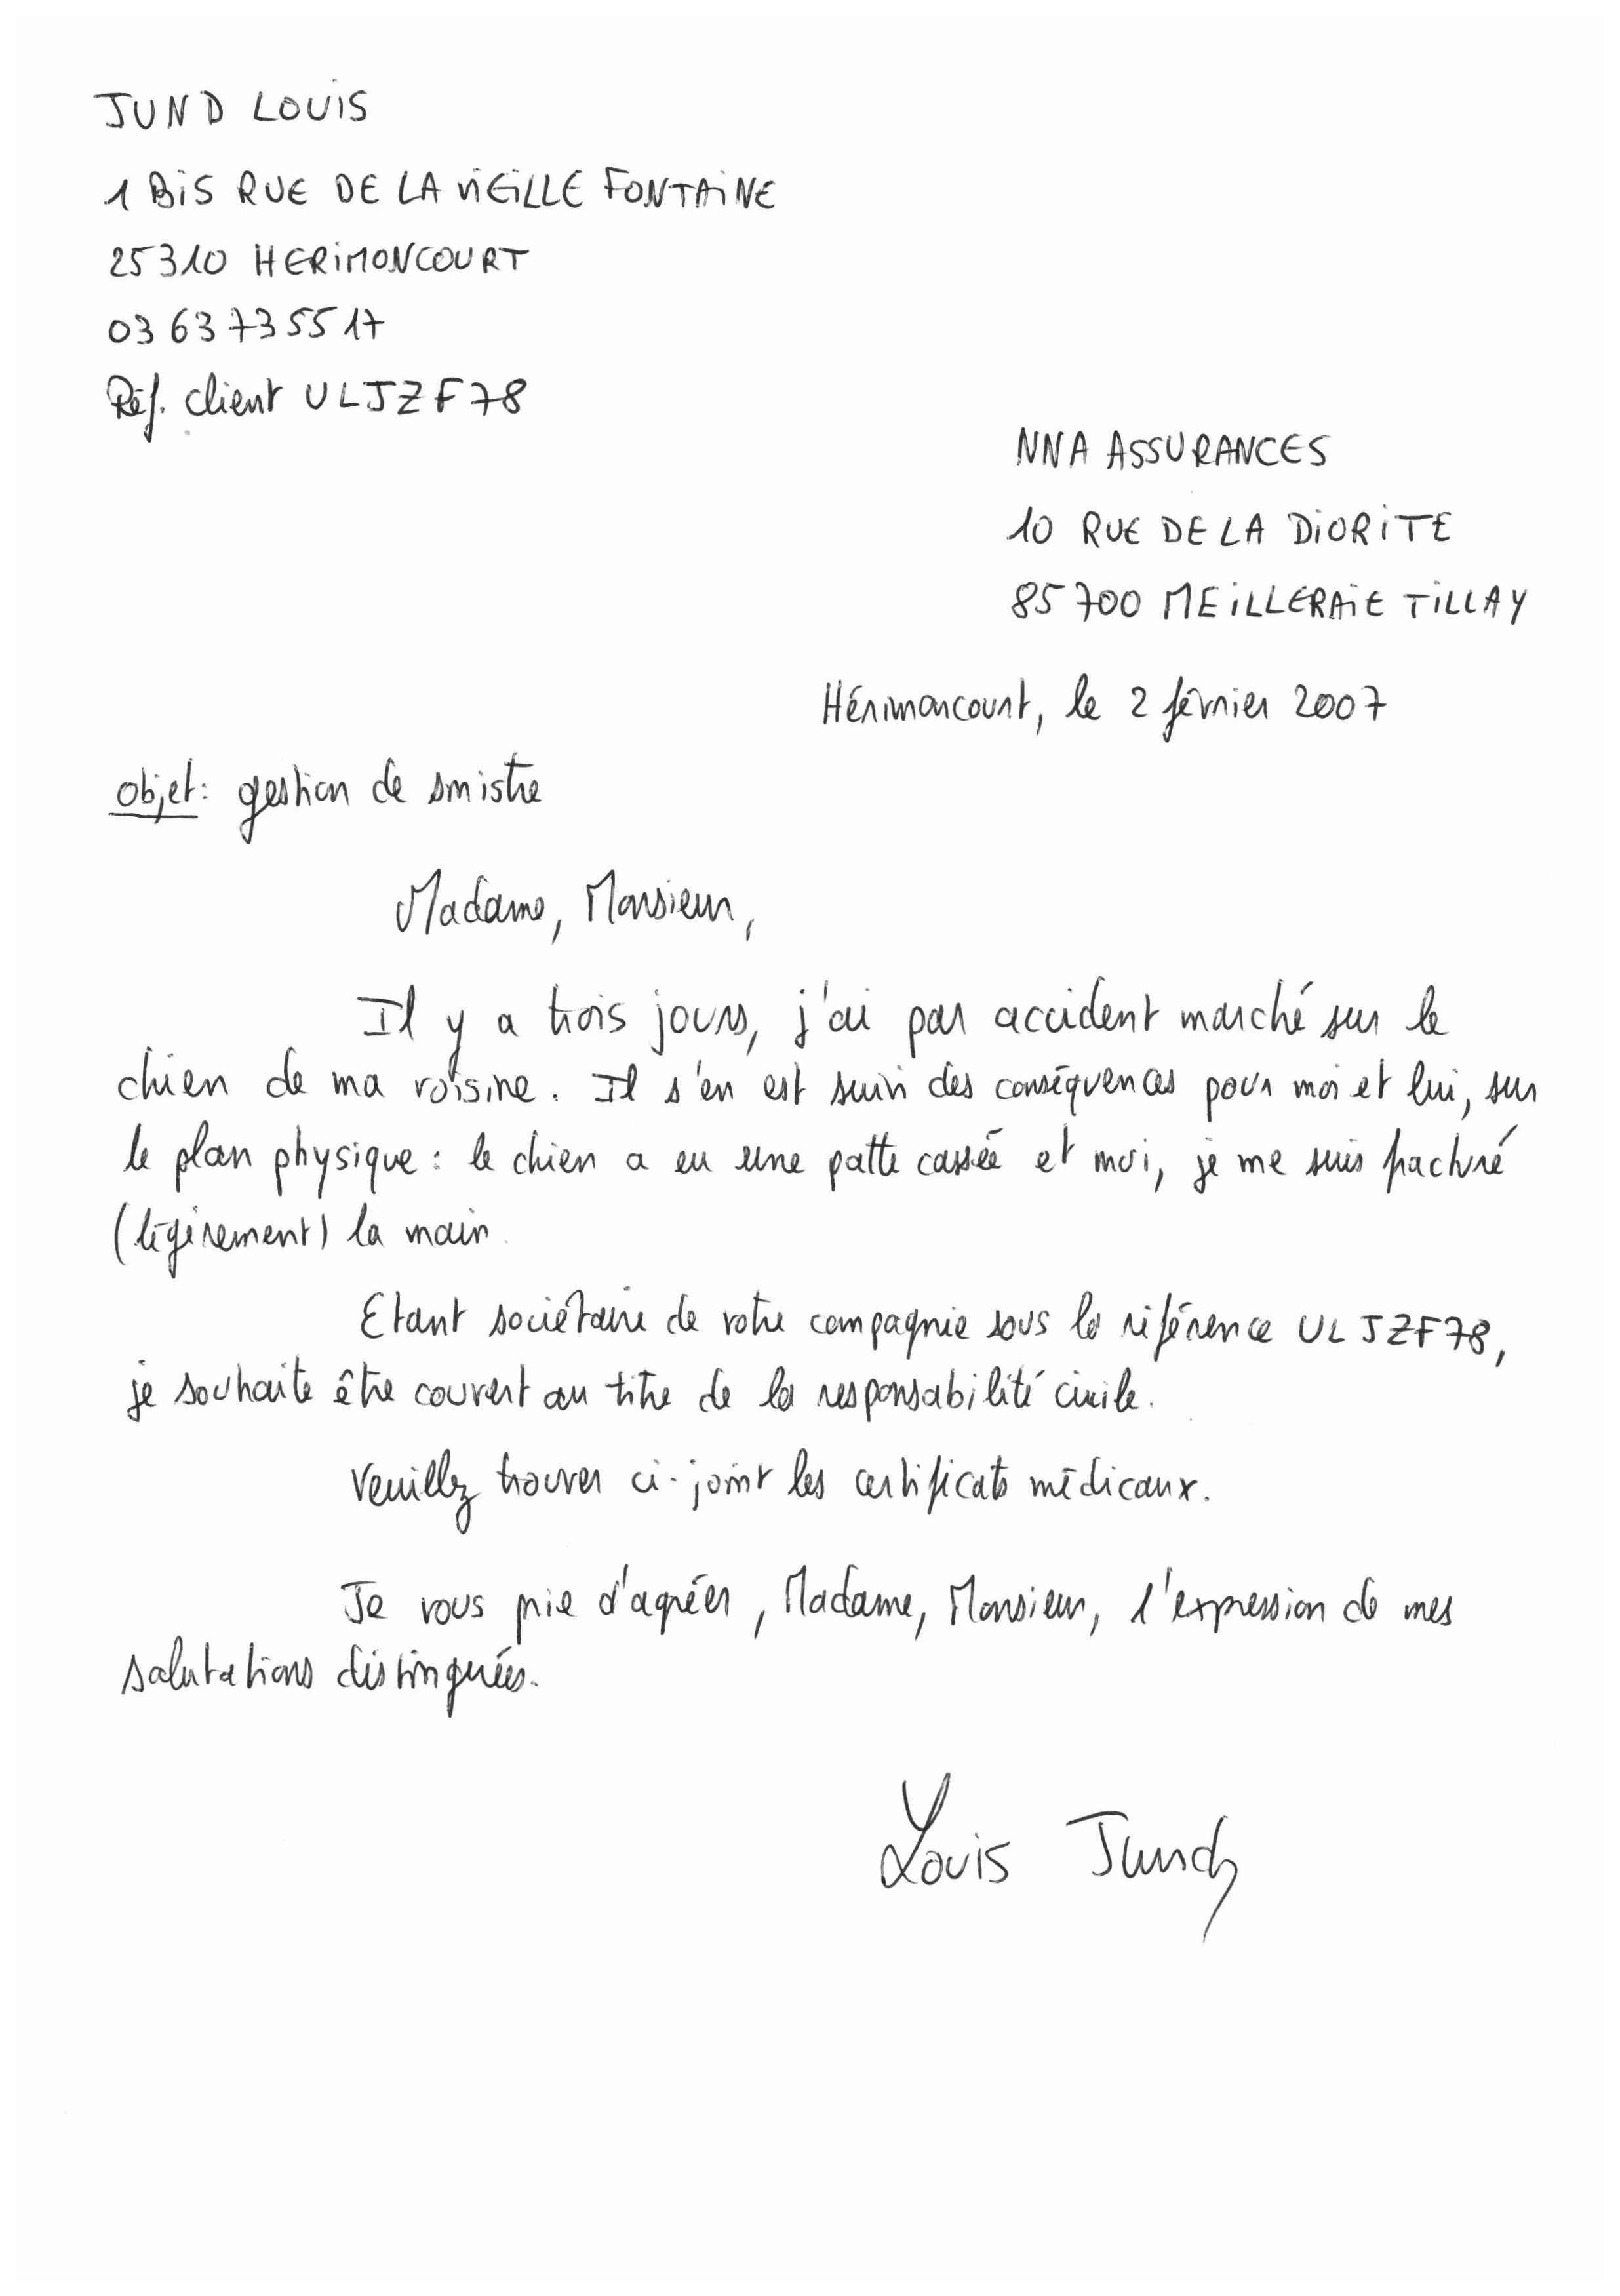 JUND LOUIS
1 BIS RUE DE LA VIEILLE FONTAINE
25310 HERIMONCOURT
03 63 73 55 17
Réf. client ULJZF78
NNA ASSURANCES
10 RUE DE LA DIORITE
85700 MEILLERAIE TILLAY
Hérimoncourt, le 2 février 2007
objet: gestion de sinistre
Madame, Monsieur,
Il y a trois jours, j'ai par accident marché sur le
chien de ma voisine. Il s'en est suivi des conséquences pour moi et lui, sur
le plan physique : le chien a eu une patte cassée et moi, je me suis fracturé
(légèrement) la main.
Etant sociétaire de votre compagnie sous la référence ULJZF78,
je souhaite être couvert au titre de la responsabilité civile.
Veuillez trouver ci-joint les certificats médicaux.
Je vous prie d'agréer, Madame, Monsieur, l'expression de mes
salutations distinguées.
Louis Jund